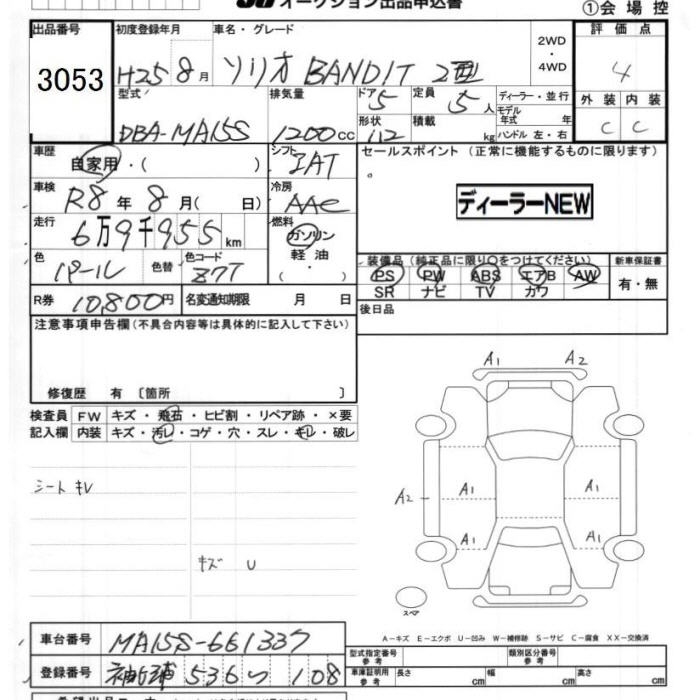 オークション出品申込書
①会場控
出品番号 初度登録年月 車名・グレード 評価点
3053 H25 8月 ソリオ BANDIT 2型 2WD・4WD 4
型式 排気量 ドア 5 定員 5人 ディーラー・並行 外装 内装
モデル年式 年
DBA-MA15S 1200cc 形状 積載 kg ハンドル 左・右 C C
車歴 自家用・( ) シフト IAT セールスポイント (正常に機能するものに限ります)
車検 R8年 8月( 日) 冷房 AAC
ディーラーNEW
走行 6万9千955km 燃料 ガソリン 軽油 ・( )
色 パール 色替 色コード Z7T 装備品 (純正品に限り○をつけてください) 新車保証書
PS PW ABS エアB AW 有・無
SR ナビ TV カワ
R券 10,800円 名変通知期限 月 日 後日品
注意事項申告欄(不具合内容等は具体的に記入して下さい)
修復歴 有 〔箇所 〕
検査員 FW キズ・飛石・ヒビ割・リペア跡・×要
記入欄 内装 キズ・汚レ・コゲ・穴・スレ・キレ・破レ
A1 A2
シート キレ
A2 A1 A1
A1 A1
キズ U
スペア
A-キズ E-エクボ U-凹み W-補修跡 S-サビ C-腐食 XX-交換済
車台番号 MA15S-661337
型式指定番号 参考 類別区分番号 参考
登録番号 536 108
車庫証明用 参考 長さ cm 幅 cm 高さ cm